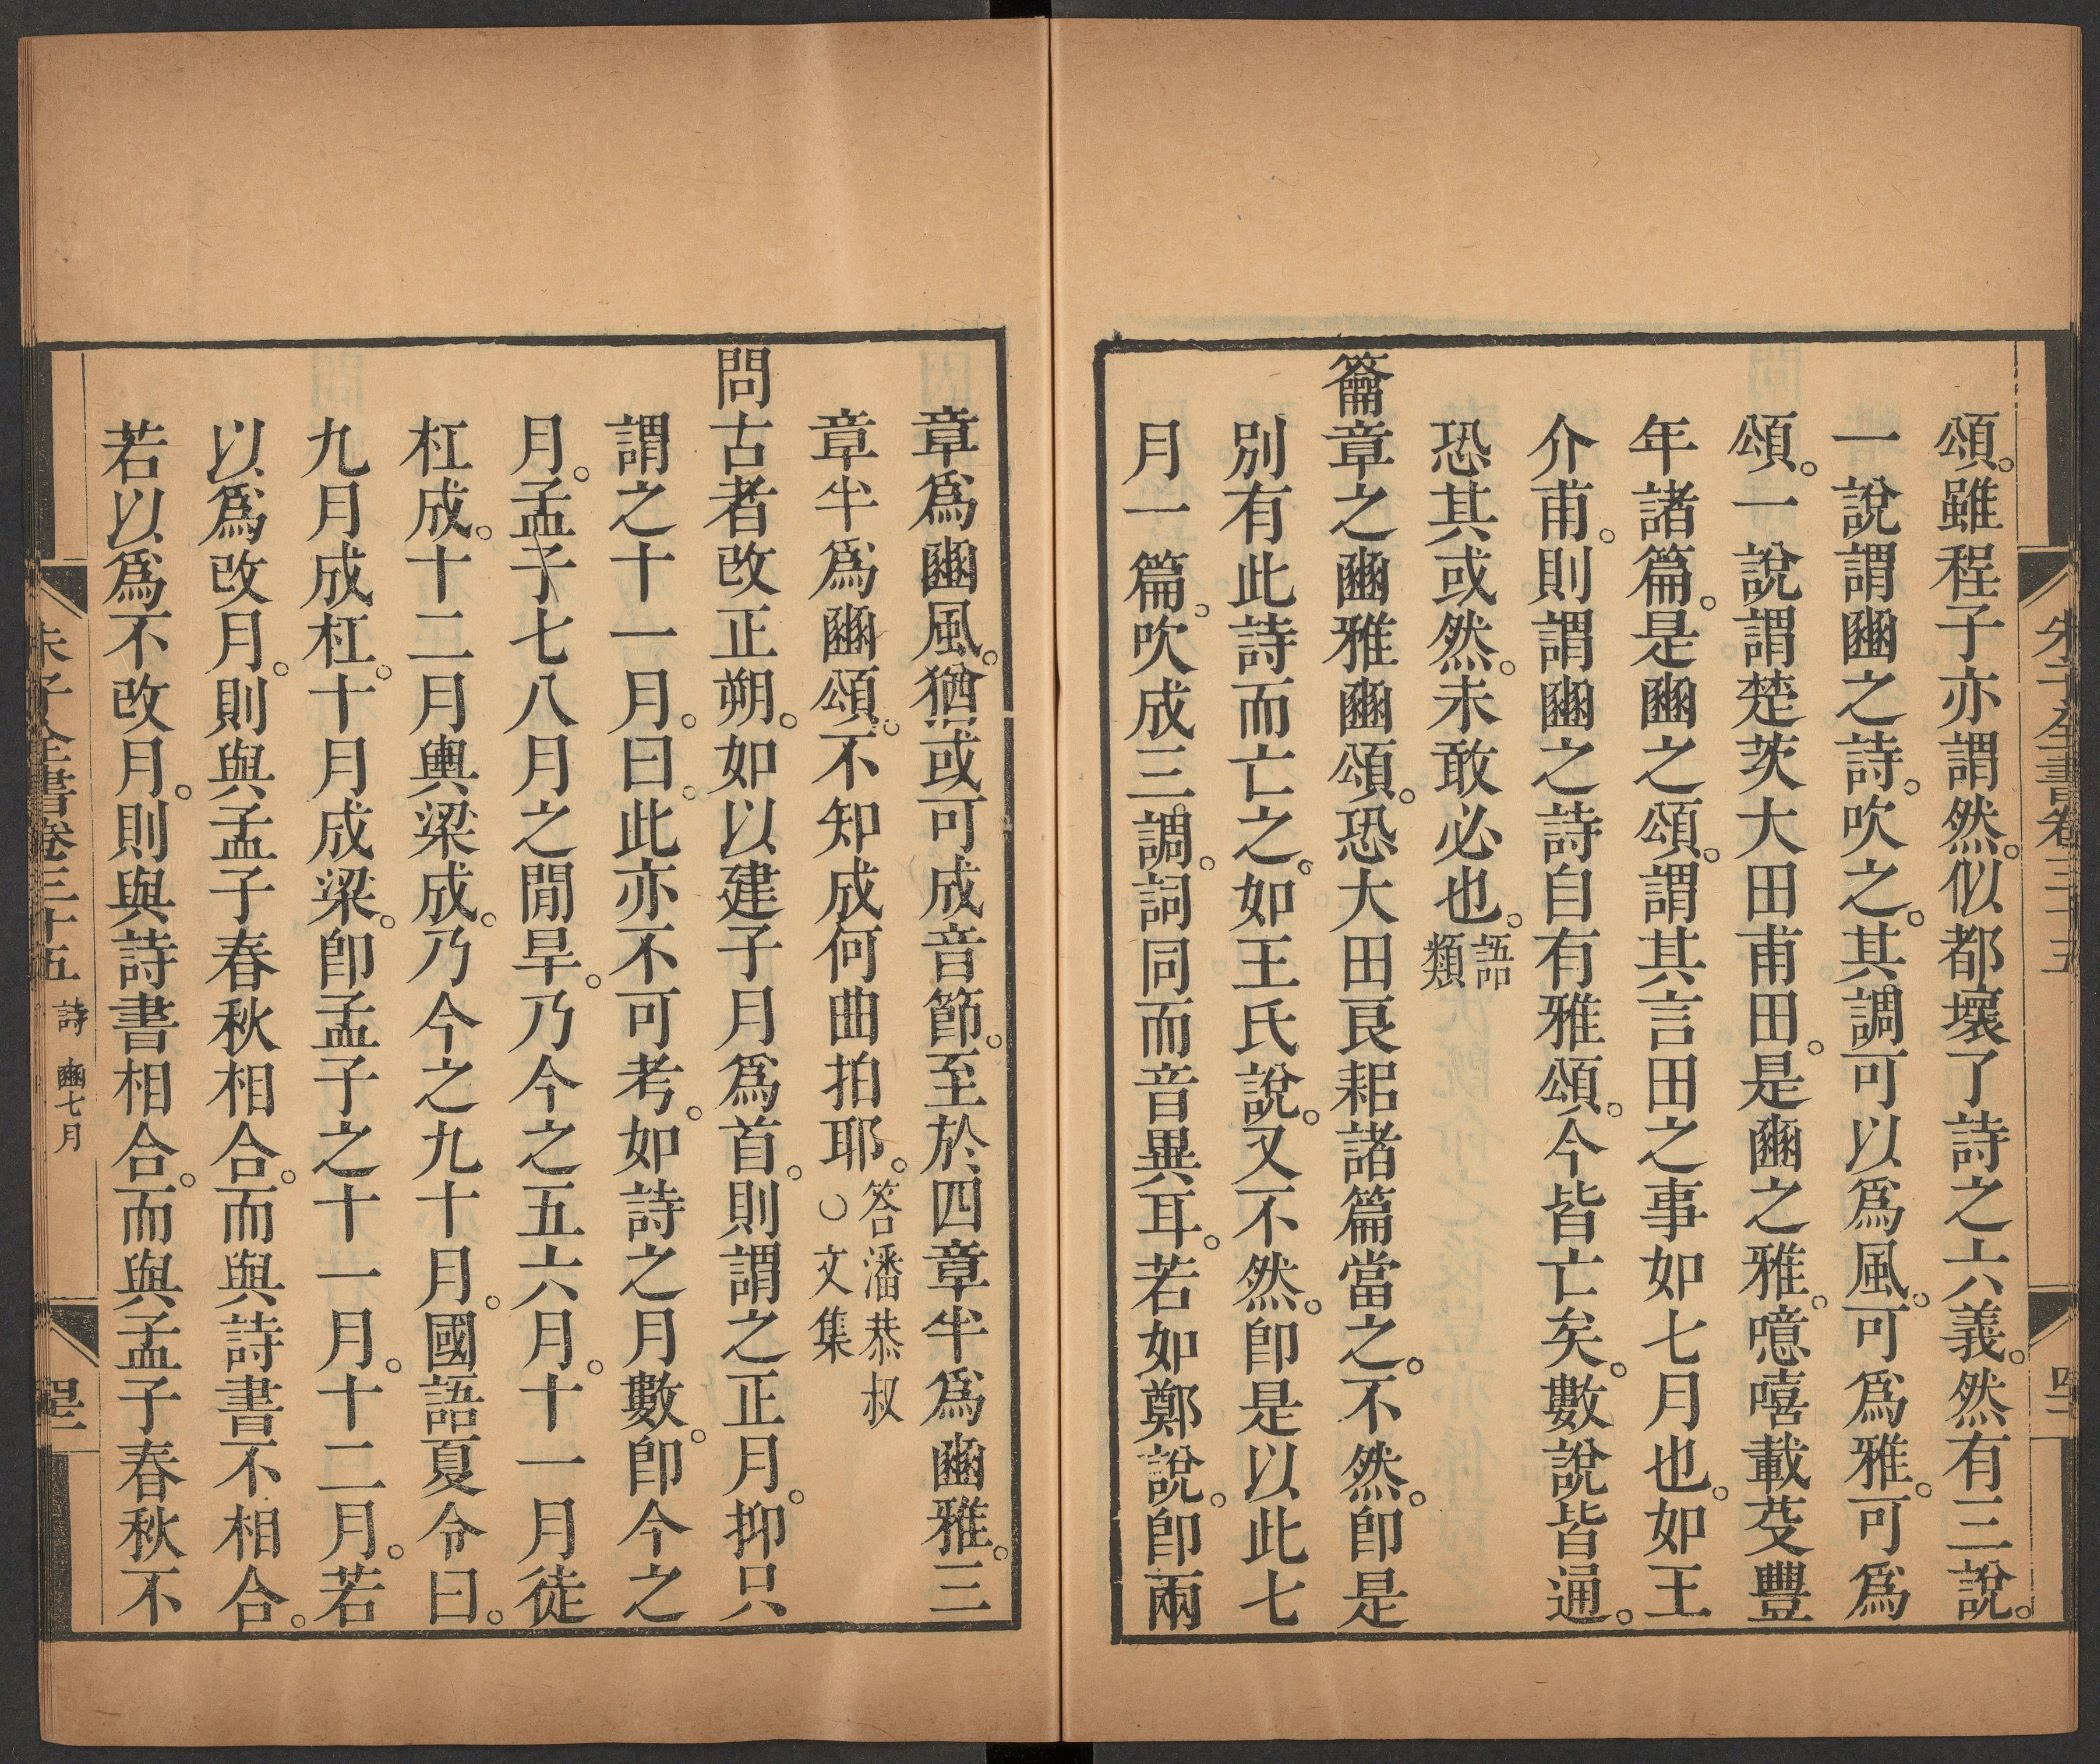 頌。雖程子亦謂然。似都壞了詩之六義。然有三說。
一說謂豳之詩。吹之。其調可以爲風。可爲雅。可爲
頌。一說謂楚茨大田甫田。是豳之雅。噫嘻載芟豐
年諸篇。是豳之頌。謂其言田之事如七月也。如王
介甫。則謂豳之詩自有雅頌。今皆亡矣。數說皆通。
恐其或然。未敢必也。語類
籥章之豳雅豳頌。恐大田良耜諸篇當之。不然。卽是
別有此詩而亡之。如王氏說。又不然。卽是以此七
月一篇。吹成三調。詞同而音異耳。若如鄭說。卽兩
章爲豳風。猶或可成音節。至於四章半爲豳雅。三
章半爲豳頌。不知成何曲拍耶。答潘恭叔○文集
問古者改正朔。如以建子月爲首。則謂之正月。抑只
謂之十一月。曰。此亦不可考。如詩之月數。卽今之
月。孟子七八月之閒旱。乃今之五六月。十一月徒
杠成。十二月輿梁成。乃今之九十月。國語夏令曰。
九月成杠。十月成梁。卽孟子之十一月。十二月。若
以爲改月。則與孟子春秋相合。而與詩書不相合。
若以爲不改月。則與詩書相合。而與孟子春秋不
朱子全書卷三十五 詩 豳七月